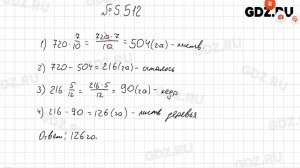 GDZ.RU
№5.512
1) 720·7/10 = 720·7/10 = 504(га) - листв.
2) 720 - 504 = 216(га) - осталось
3) 216·5/12 = 216·5/12 = 90(га) - кедр.
4) 216 - 90 = 126(га) - листв деревья
Ответ: 126га.
GDZ.RU